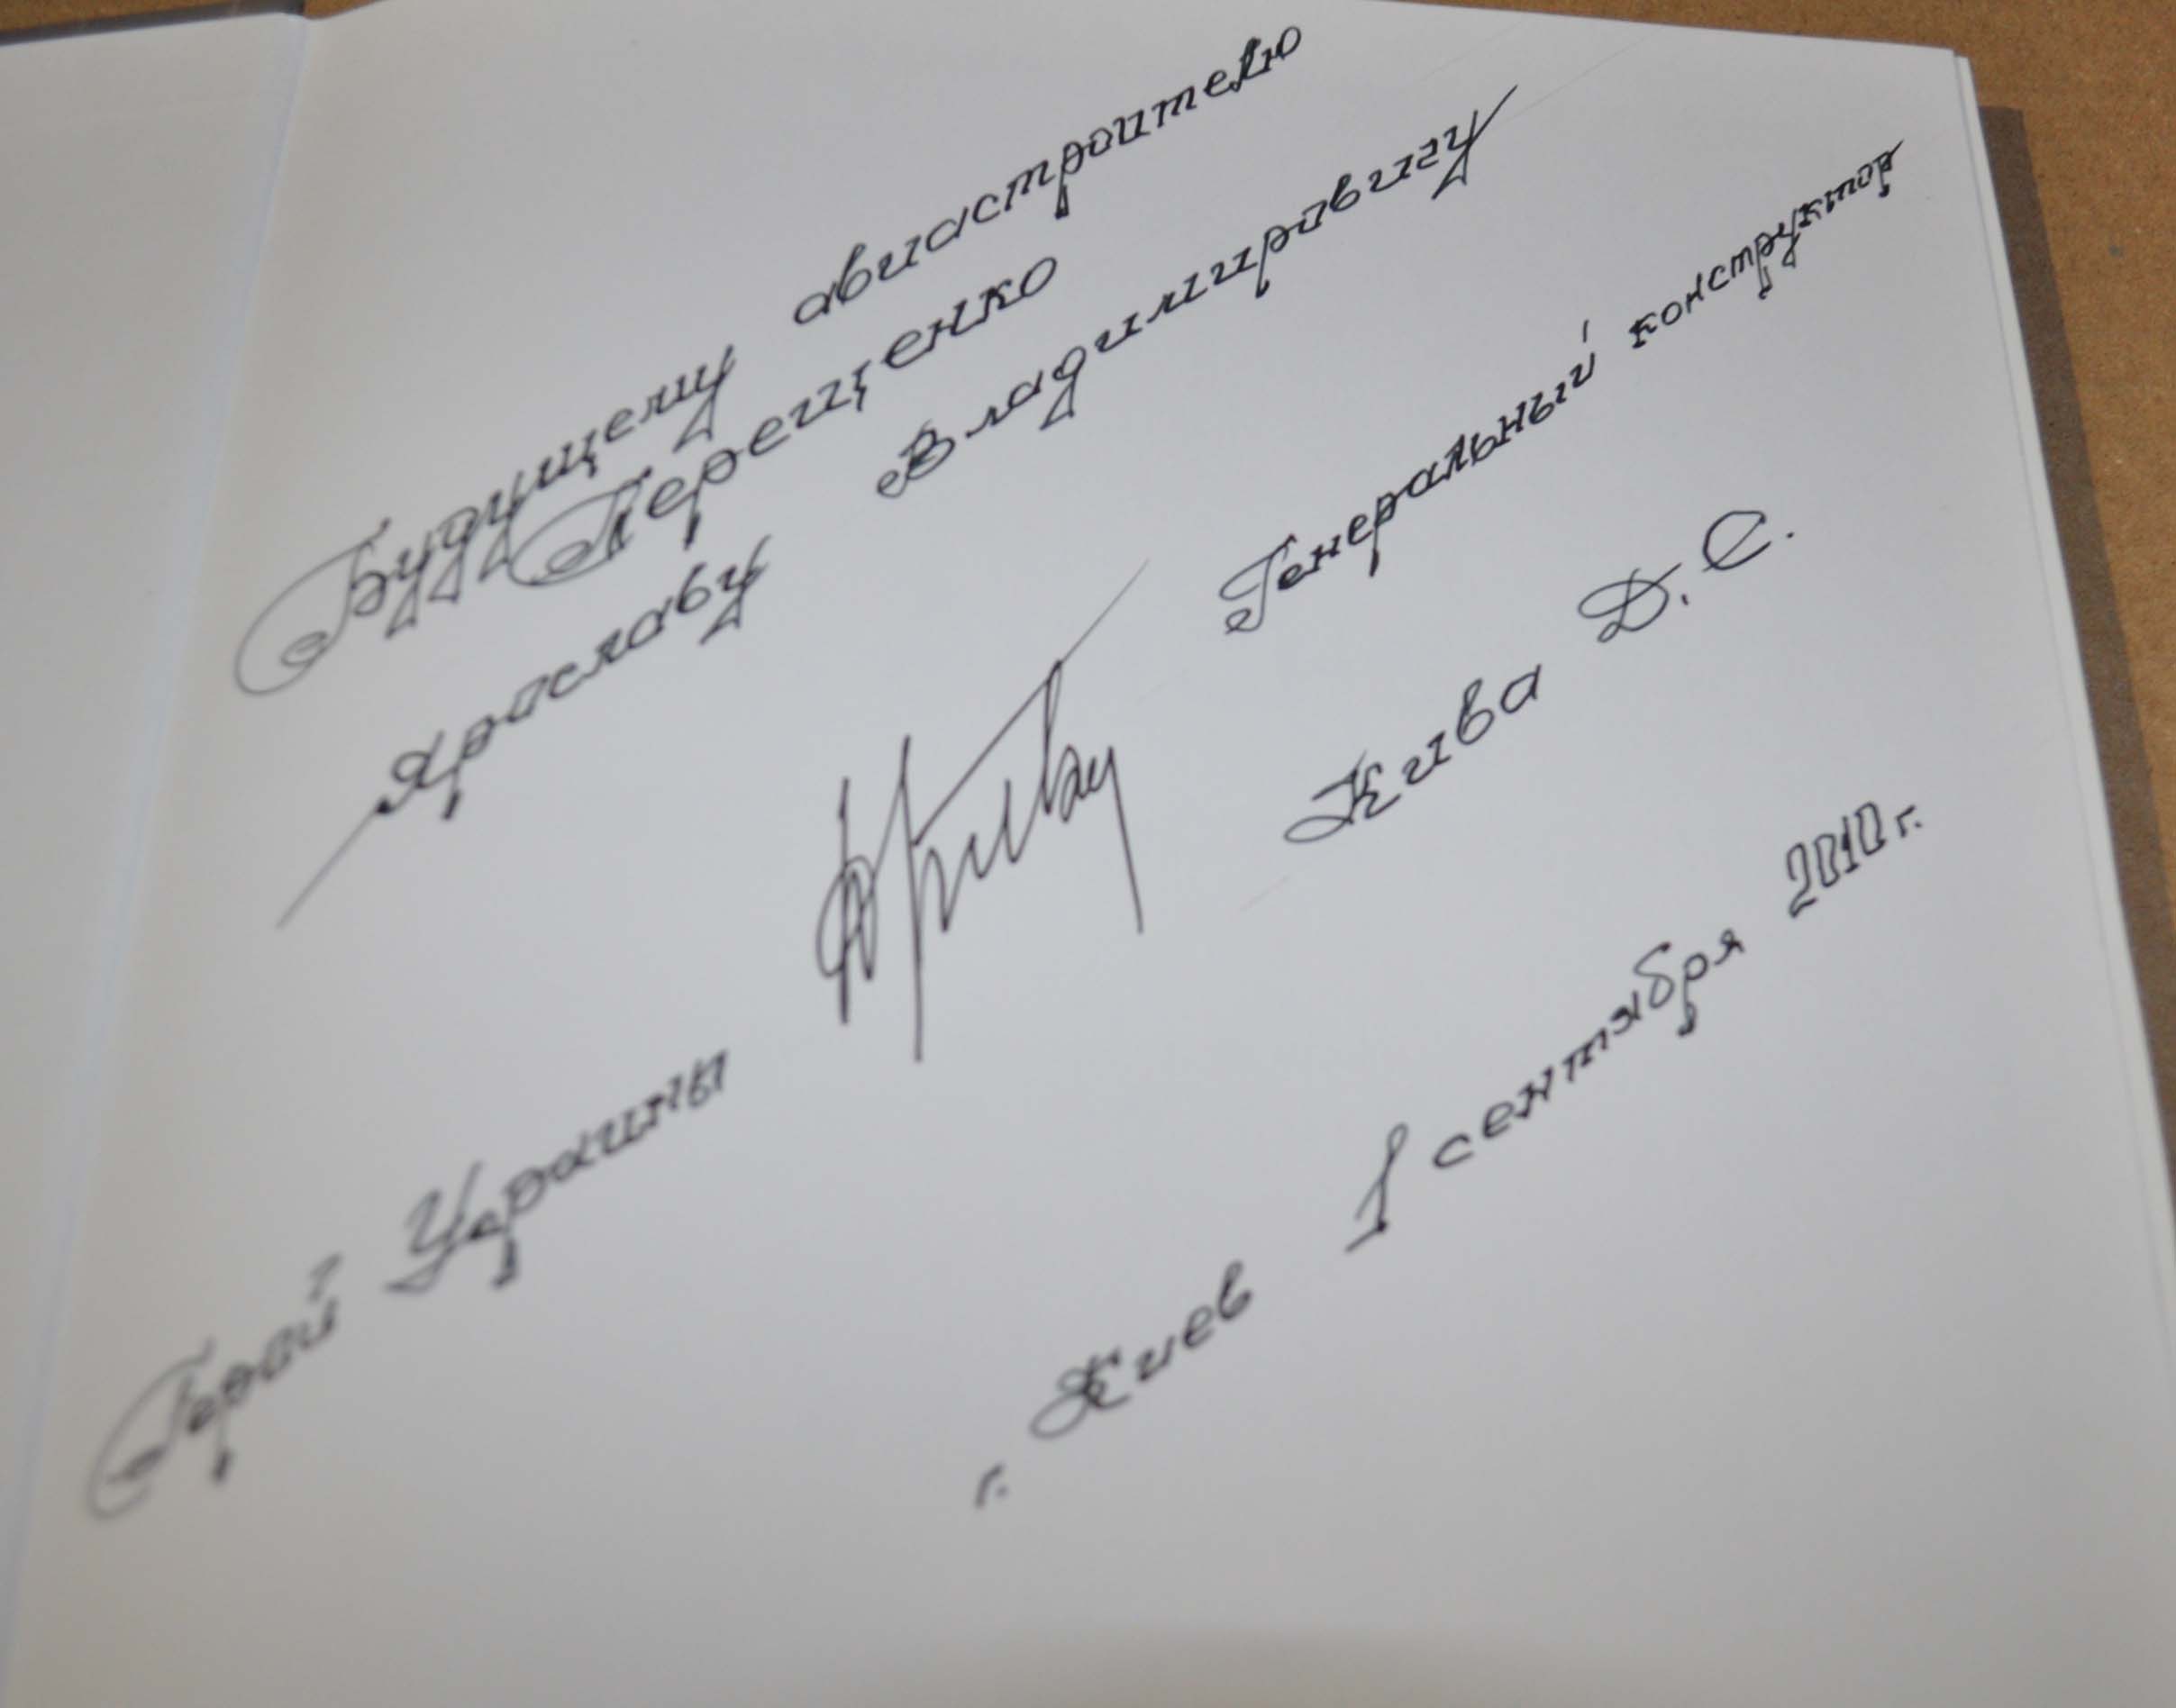 Будущему авиастроителю
Терещенко
Ярославу Владимировичу
Генеральный конструктор
Кива Д. С.
Герой Украины
г. Киев 1 сентября 2010 г.